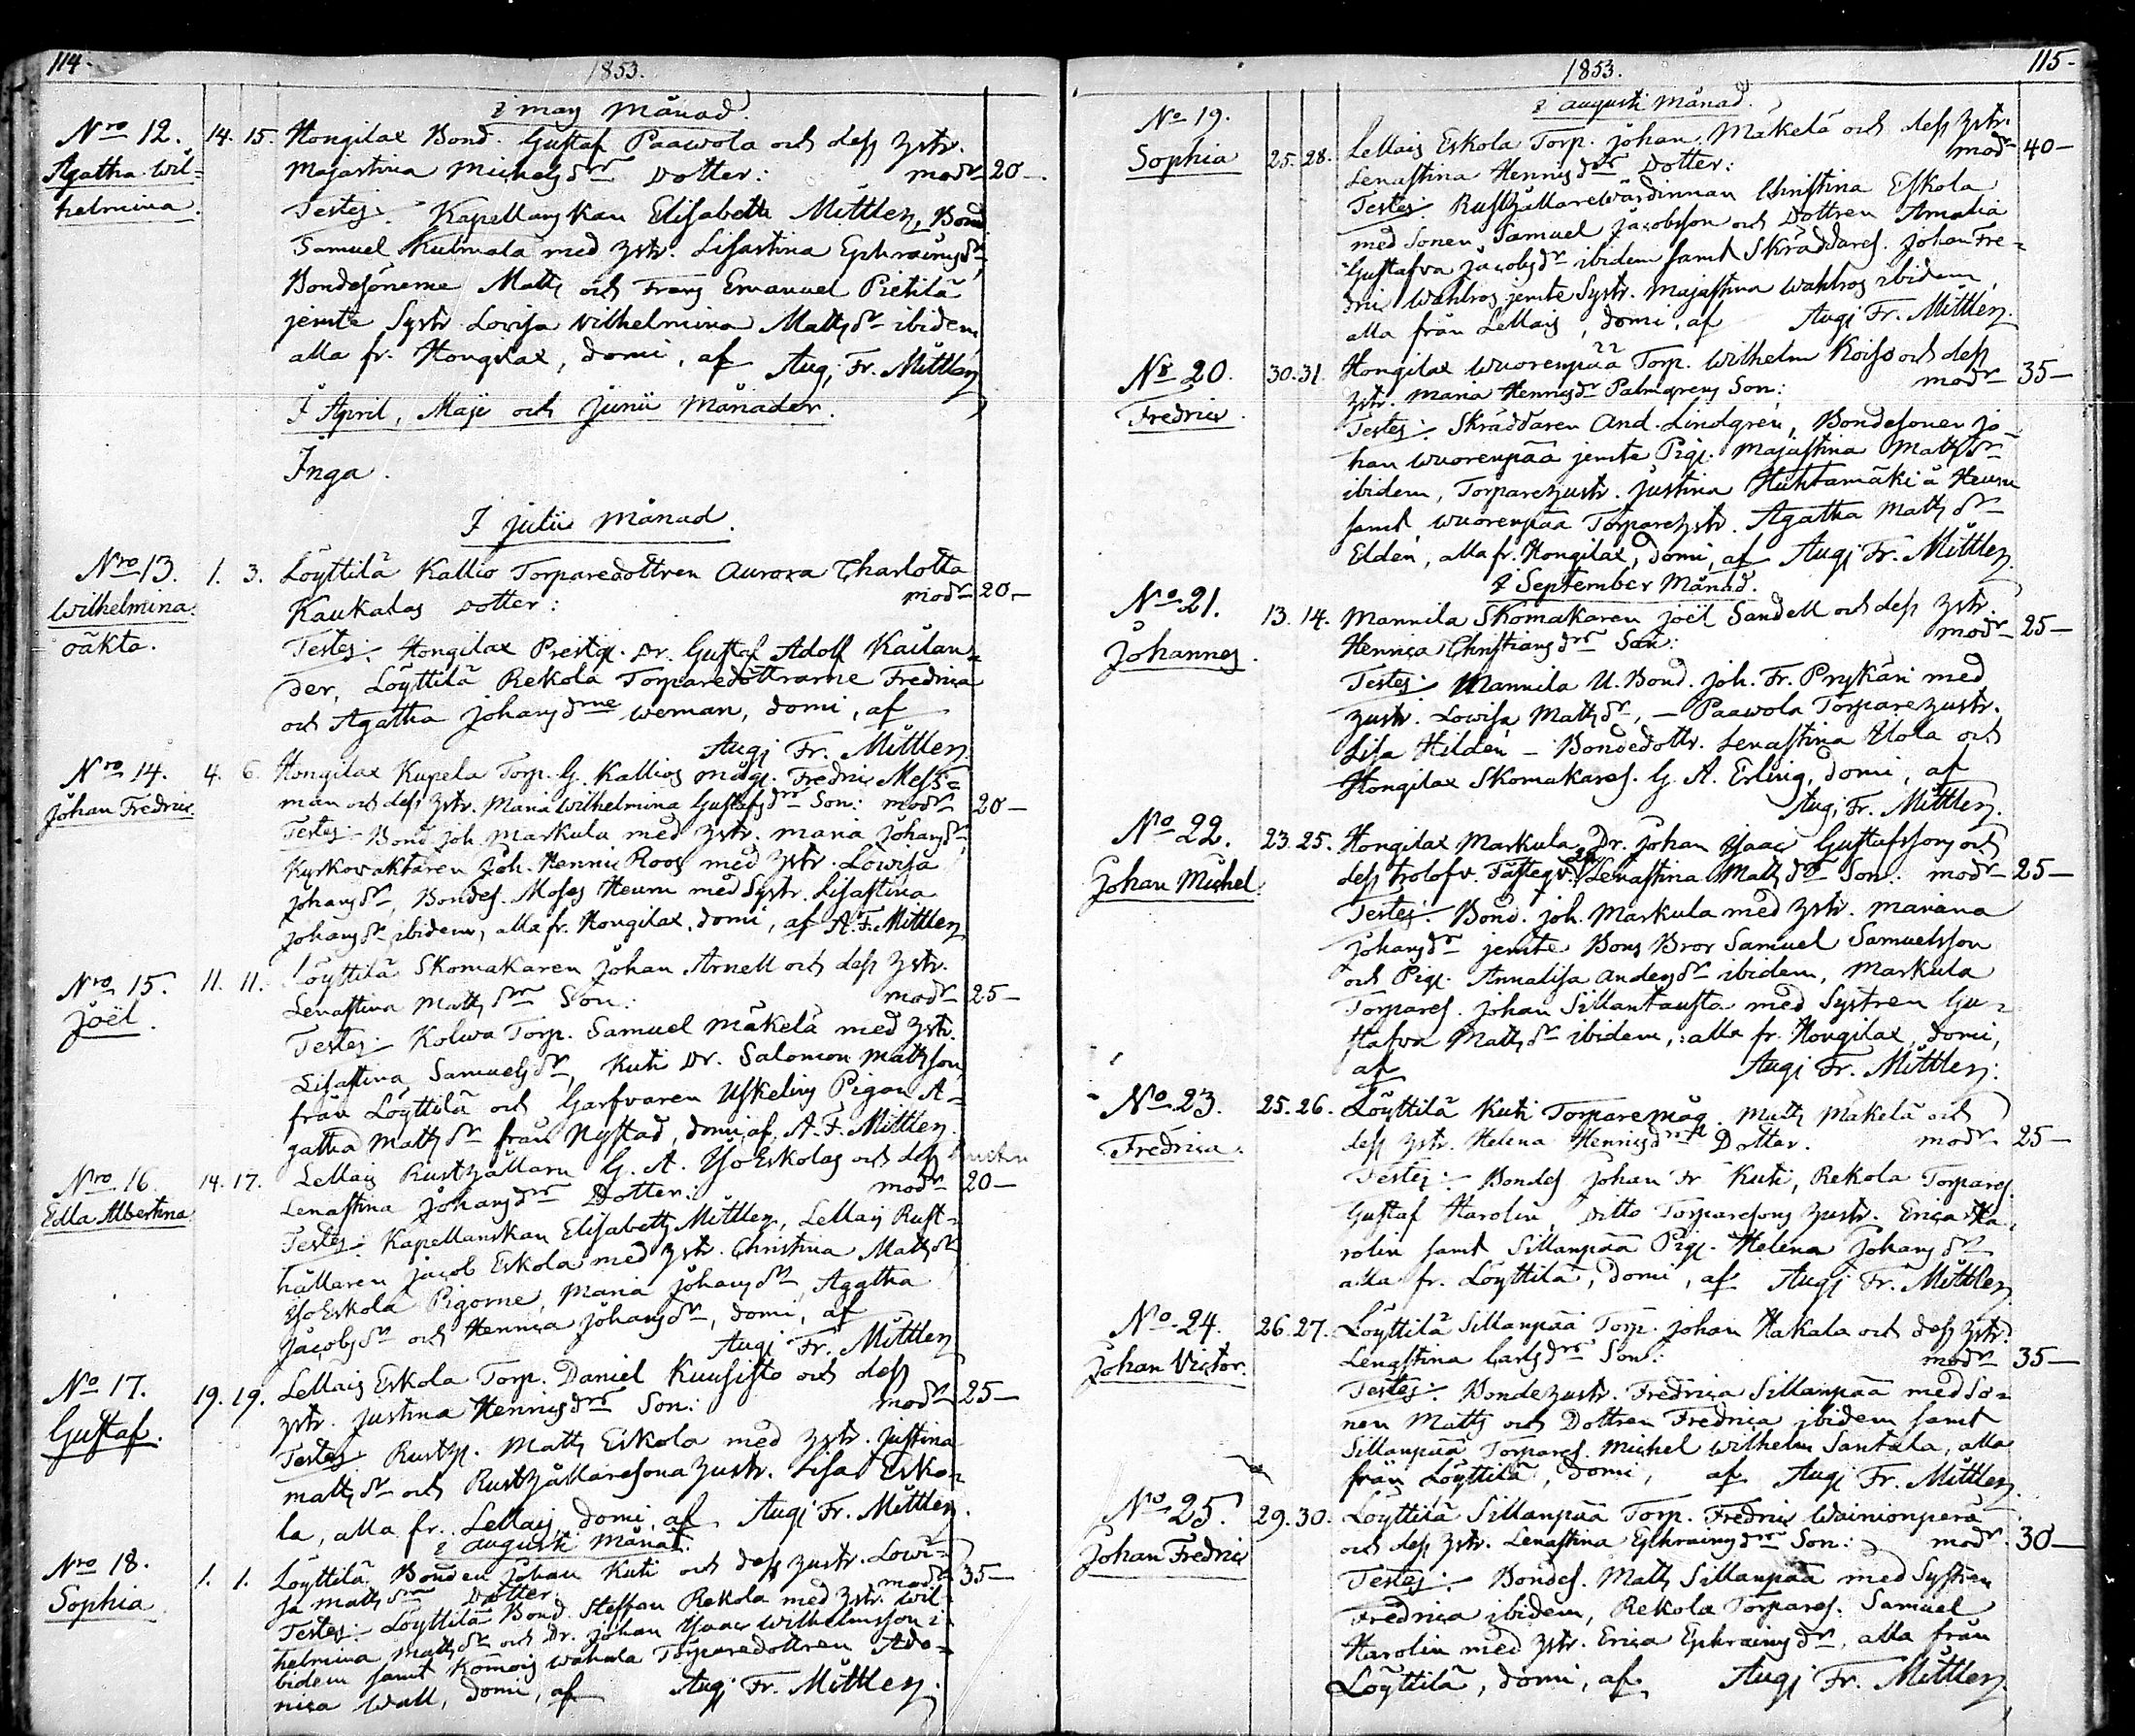 114.
1853.
I may Månad.
Nro 12. 14. 15. Hongilax Bond. Gustaf Paawola och dess hstr.
Agatha Wil=
helmina.
Majastina Michelsdr Dotter: modr 20-.
Testes: Kapellanskan Elisabeth Mittler, Bond
Samuel Kulmala med hstr. Lisastina Ephraimsdr,
Bondesönerne Matts och Frans Emanuel Pietilä
jemte Systr. Lovisa Wilhelmina Mattsdr ibidem,
alla fr. Hongilax, domi, af Aug. Fr. Mittler
I April, Maji och Junii Månader.
Inga.
I Julii Månad.
Nro 13. 1. 3. Löyttilä Kallio Torparedottren Aurora Charlotta
Wilhelmina.
oäkta.
Kaukalas Dotter: modr 20-
Testes: Hongilax Prestg. Dr. Gustaf Adolf Kailan=
der, Löyttilä Rekola Torparedöttrarne Fredrica
och Agatha Johansdrne Weman, domi, af
Aug. Fr. Mittler
Nro 14. 4. 6. Hongilax Kupela Torp. G. Kallios måg. Fredric Mess=
Johan Fredric.
man och dess hstr. Maria Wilhelmina Gustafsdr Son: modr 20-
Testes: Bond. Joh. Markula med hstr. Maria Johansdr,
Kyrkowaktaren Joh. Henric Roos med hstr. Lowisa
Johansdr, Bondes. Moses Heurn med Systr. Lisastina
Johansdr ibidem, alla fr. Hongilax, domi, af A. Fr. Mittler
Nro 15. 11. 11. Löyttilä Skomakaren Johan Arnell och dess hstr.
Joël.
Lenastina Mattsdr Son: modr 25-
Testes: Kolwa Torp. Samuel Mäkelä med hstr.
Lisastina Samuelsdr, Kuti Dr. Salomon Mattsson,
från Löyttilä och Garfvaren Uskelins Pigan A=
gatha Mattsdr från Nystad, domi, af A. F. Mittler.
Nro 16. 14. 17. Lellais Rusthållarn G. A. YsoEskolas och dess hustru
Edla Albertina
Lenastina Johansdr Dotter: modr 20-
Testes: Kapellanskan Elisabeth Mittler, Lellais Rust=
hållaren Jacob Eskola med hstr. Christina Mattsdr,
YsoEskola Pigorne, Maria Johansdr, Agatha
Jacobsdr och Henrica Johansdr, domi, af
Aug. Fr. Mittler
No 17. 19. 19. Lellais Eskola Torp. Daniel Kuusisto och dess
Gustaf.
hstr. Justina Henricsdr Son: modr 25-
Testes: Rusth. Matts Eskola med hstr. Justina
Mattsdr och Rusthållaresona hustr. Lisa Esko=
la, alla fr. Lellais, domi, af Aug. Fr. Mittler.
I Augusti Månad.
Nro 18. 1. 1. Löyttilä Bonden Johan Kuti och dess hustr. Lowi=
Sophia
sa Mattsdr Dotter: modr 35-
Testes: Löyttilä Bond. Steffan Rekola med hstr. Wil
helmina Mattsdr och Dr. Johan Ysaac Wilhelmsson i
bidem samt Komois Wahala Torparedottren Ado=
nica Wall, domi, af Aug. Fr. Mittler.
115-
1853.
I Augusti Månad.
No 19. 25. 28. Lellais Eskola Torp. Johan Mäkelä och dess hstr.
Sophia
Lenastina Henricsdr Dotter: modr 40-
Testes: Rusthållarewärdinnan Christina Eskola
med Sonen Samuel Jacobsson och Dottren Amalia
Gustafva Jacobsdr ibidem samt Skräddares. Johan Fre=
dric Wahlros jemte Systr. Majastina Wahlros ibidem,
alla från Lellais, domi, af Aug. Fr. Mittler.
No 20. 30. 31. Hongilax Wuorenpää Torp. Wilhelm Koiso och dess
Fredric.
hstr. Maria Henricsdr Palmgrens Son: modr 35-
Testes: Skräddaren And. Lindgren, Bondesonen Jo=
han Wuorenpää jemte Pig. Majastina Mattsdr
ibidem, Torparehustr. Justina Huhtamäki å Heurn
samt Wuorenpää Torparehstr. Agatha Mattsdr
Eldén, alla fr. Hongilax, domi, af Aug. Fr. Mittler.
I September Månad.
No 21. 13. 14. Mannila Skomakaren Joël Sandell och dess hstr.
Johannes.
Henrica Christiansdr Son: modr 25-
Testes: Mannila U. Bond. Joh. Fr. Prykäri med
hustr. Lowisa Mattsdr, - Paawola Torparehustr.
Lisa Hildén - Bondedottr. Lenastina Ylola och
Hongilax Skomakares. G. A. Erling, domi, af
Aug. Fr. Mittler.
No 22. 23. 25. Hongilax Markula Dr. Johan Ysaac Gustafssons och
Johan Michel.
dess trolofv. Fästeqv. Lenastina Mattsdr Son: modr 25-
Testes: Bond. Joh. Markula med hstr. Mariana
Johansdr jemte Bons Bror Samuel Samuelsson
och Pig. Annalisa Andersdr ibidem, Markula
Torpares. Johan Sillantausta med Systren Gu=
stafva Mattsdr ibidem, alla fr. Hongilax, domi,
af Aug. Fr. Mittler.
No 23. 25. 26. Löyttilä Kuti Torparemåg. Matts Mäkelä och
Fredrica.
dess hstr. Helena Henricsdr Dotter. modr 25-
Testes: Bondes. Johan Fr. Kuti, Rekola Torpares.
Gustaf Harolin, Ditto Torparesons hustr. Erica Ha=
rolin samt Sillanpää Pig. Helena Johansdr
alla fr. Löyttilä, domi, af Aug. Fr. Mittler
No 24. 26. 27. Löyttilä Sillanpää Torp. Johan Hakala och dess hstr.
Johan Victor.
Lenastina Carlsdr Son: modr 35-
Testes: Bondehustr. Fredrica Sillanpää med So=
nen Matts och Dottren Fredrica ibidem samt
Sillanpää Torpares. Michel Wilhelm Santala, alla
från Löyttilä, domi, af Aug. Fr. Mittler.
No 25. 29. 30. Löyttilä Sillanpää Torp. Fredric Wainionperä
Johan Fredric
och dess hstr. Lenastina Ephraimsdr Son: modr. 30-
Testes: Bondes. Matts Sillanpää med Systren
Fredrica ibidem, Rekola Torpares. Samuel
Harolin med hstr. Erica Ephraimsdr, alla från
Löyttilä, domi, af Aug. Fr. Mittler